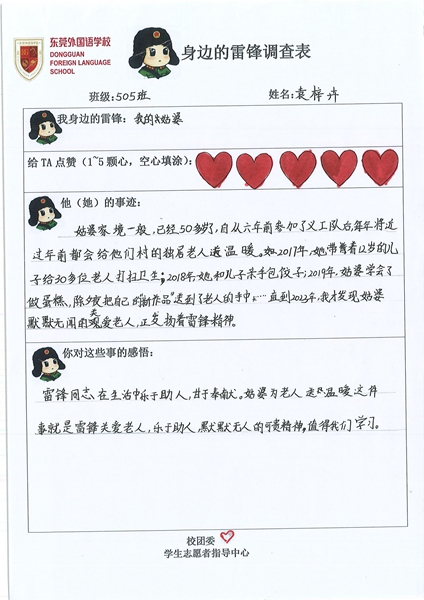 东莞外国语学校
DONGGUAN
FOREIGN LANGUAGE
SCHOOL
身边的雷锋调查表
班级:505班 姓名:袁梓卉
我身边的雷锋:我的大姑婆
给TA点赞(1~5颗心,空心填涂):
他(她)的事迹:
姑婆家境一般,已经50多岁了,自从六年前参加了义工队后,每年将近
过年前都会给他们村的独居老人送温暖。如2017年,她带着12岁的儿
子给30多位老人打扫卫生;2018年,她和儿子亲手包饺子;2019年,姑婆学会了
做蛋糕,除夕夜把自己的"新作品"送到了老人的手中……直到2022年,我才发现,姑婆
默默无闻的关爱老人,正发扬着雷锋精神。
你对这些事的感悟:
雷锋同志,在生活中乐于助人,甘于奉献。姑婆为老人送温暖这件
事就是雷锋关爱老人,乐于助人,默默无人的可贵精神,值得我们学习。
校团委
学生志愿者指导中心